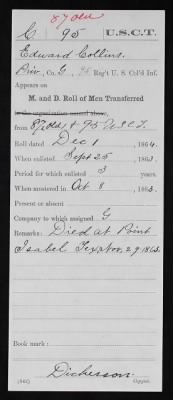 87 Old
C 95 U.S.C.T.
Edward Collins.
Priv., Co. G, 95 Reg't U. S. Col'd Inf.
Appears on
M. and D. Roll of Men Transferred
to the organization named above,
from 87 Old & 95 U.S.C.T.
Roll dated Dec 1, 1864.
When enlisted Sept 25, 1863.
Period for which enlisted 3 years.
When mustered in Oct 8, 1863.
Present or absent
Company to which assigned G
Remarks: Died at Point
Isabel Texas 29 1863.
Book mark:
Dickerson
Copyist.